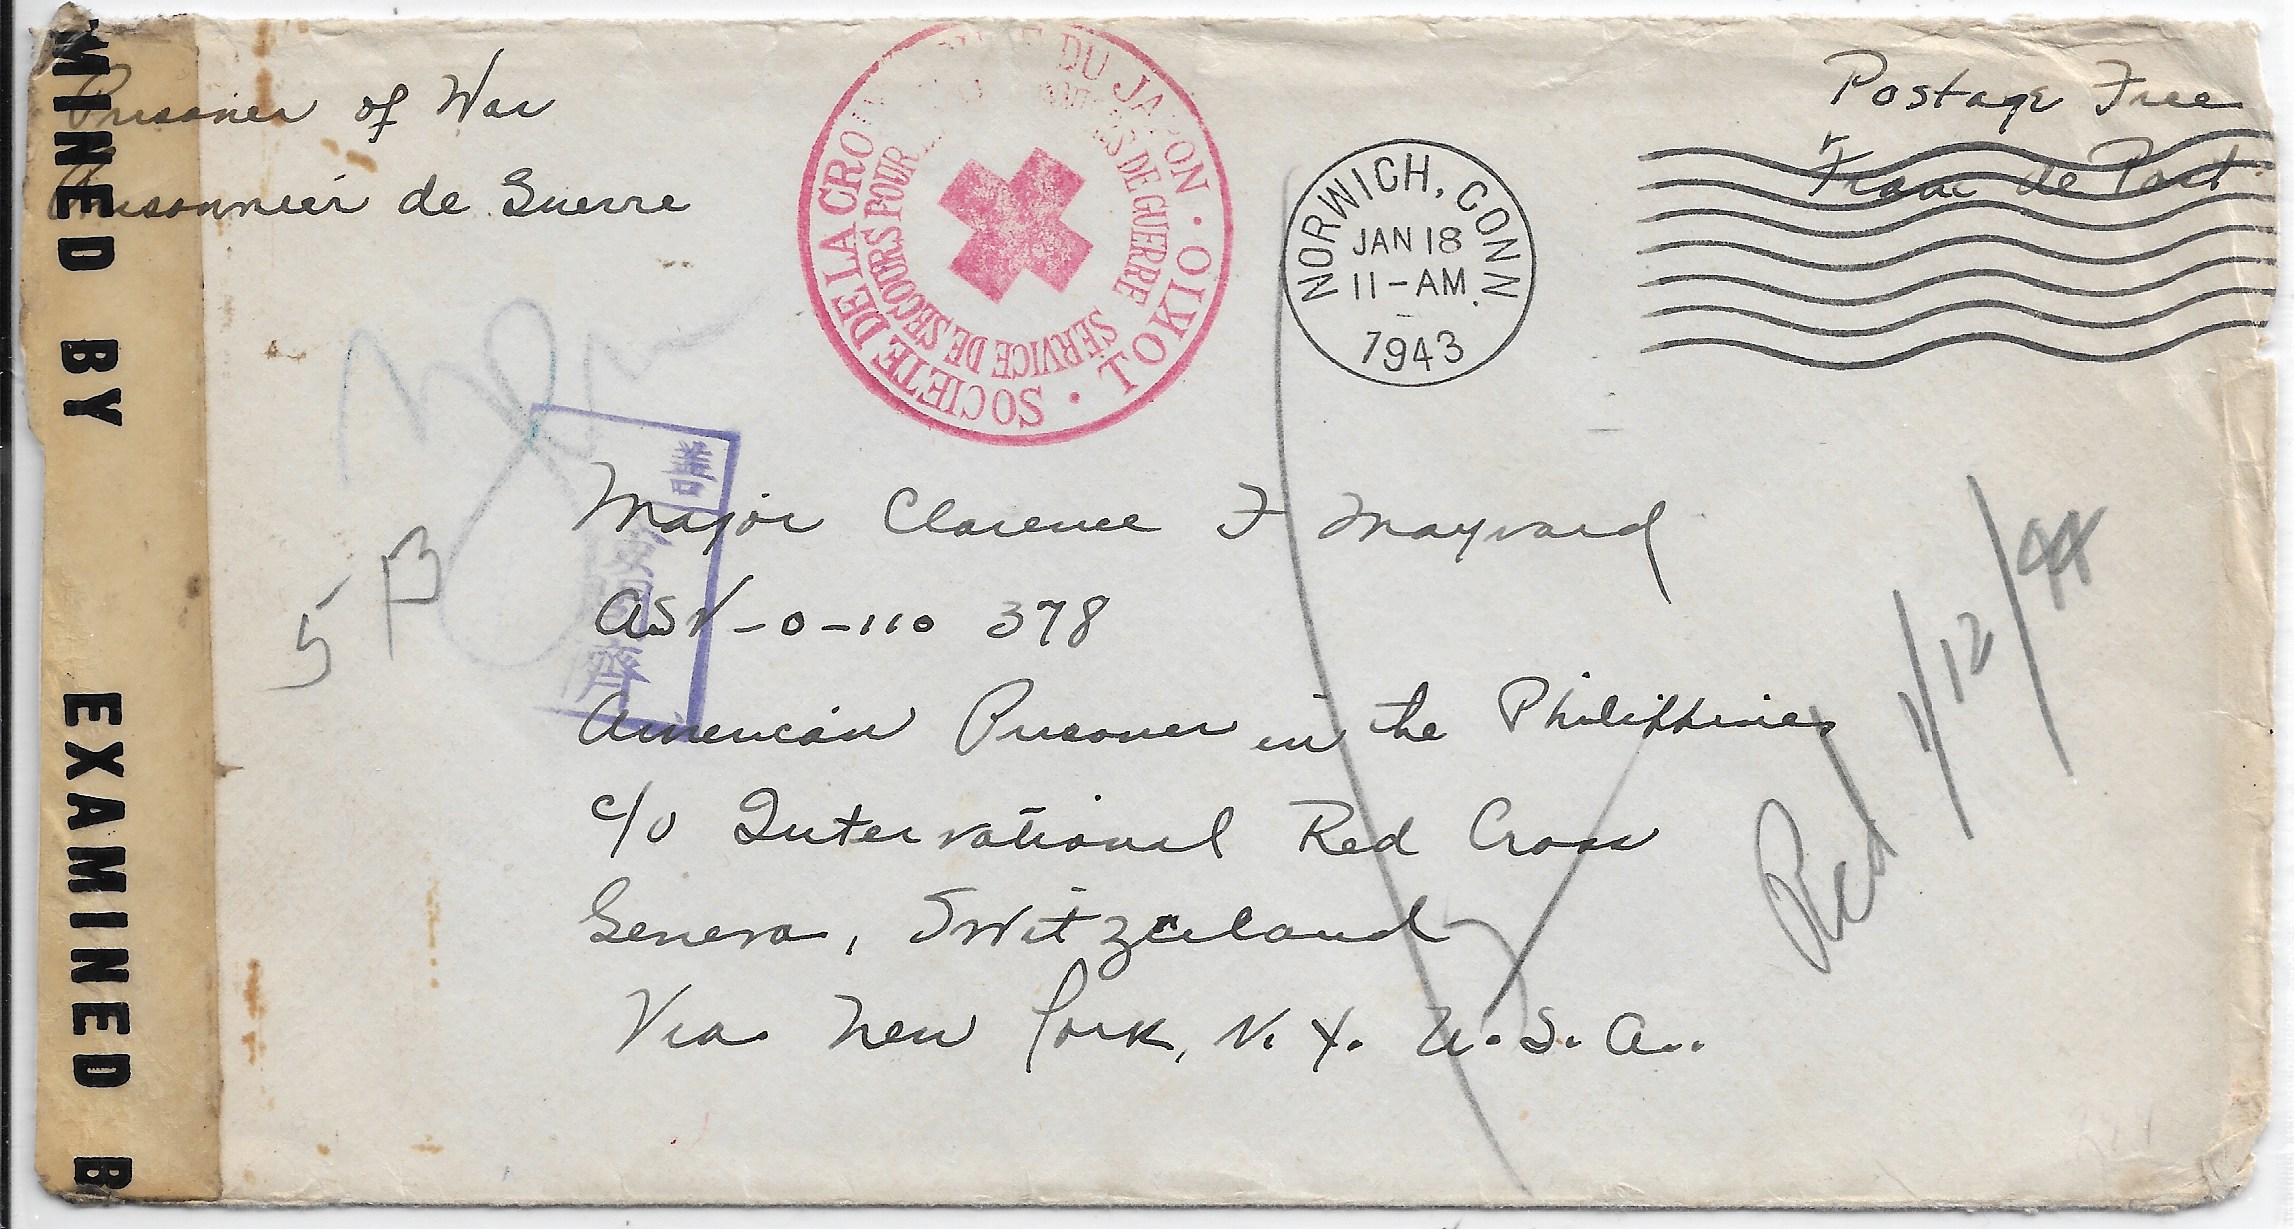 MINED BY
EXAMINED B
Prisoner of War
Prisonnier de Guerre
SOCIETE DE LA CROI DU JAPON · TOKIO ·
SERVICE DE SECOURS POUR DE GUERRE
NORWICH, CONN.
JAN 18
11-AM
1943
Postage Free
Franc de Port
5 B
Major Clarence F Maynard
ASN-O-110 378
American Prisoner in the Philippines
c/o International Red Cross
Geneva, Switzerland
Via New York, N.Y. U.S.A.
Rcd 1/12/44
濟